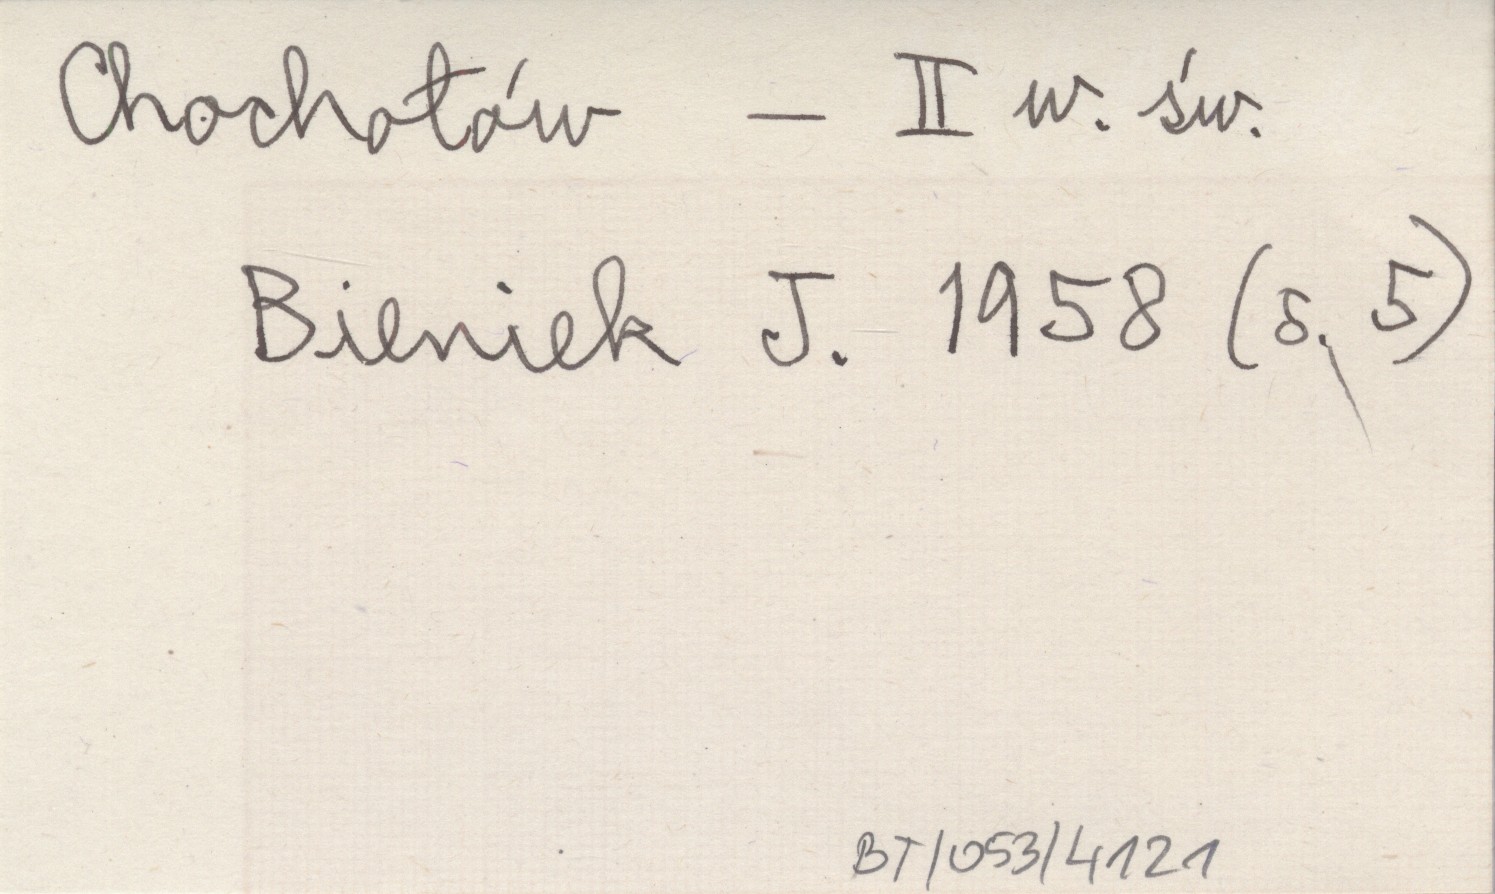 Chochołów — II w. św.
Bieniek J. 1958 (s. 5)
BT/053/4121